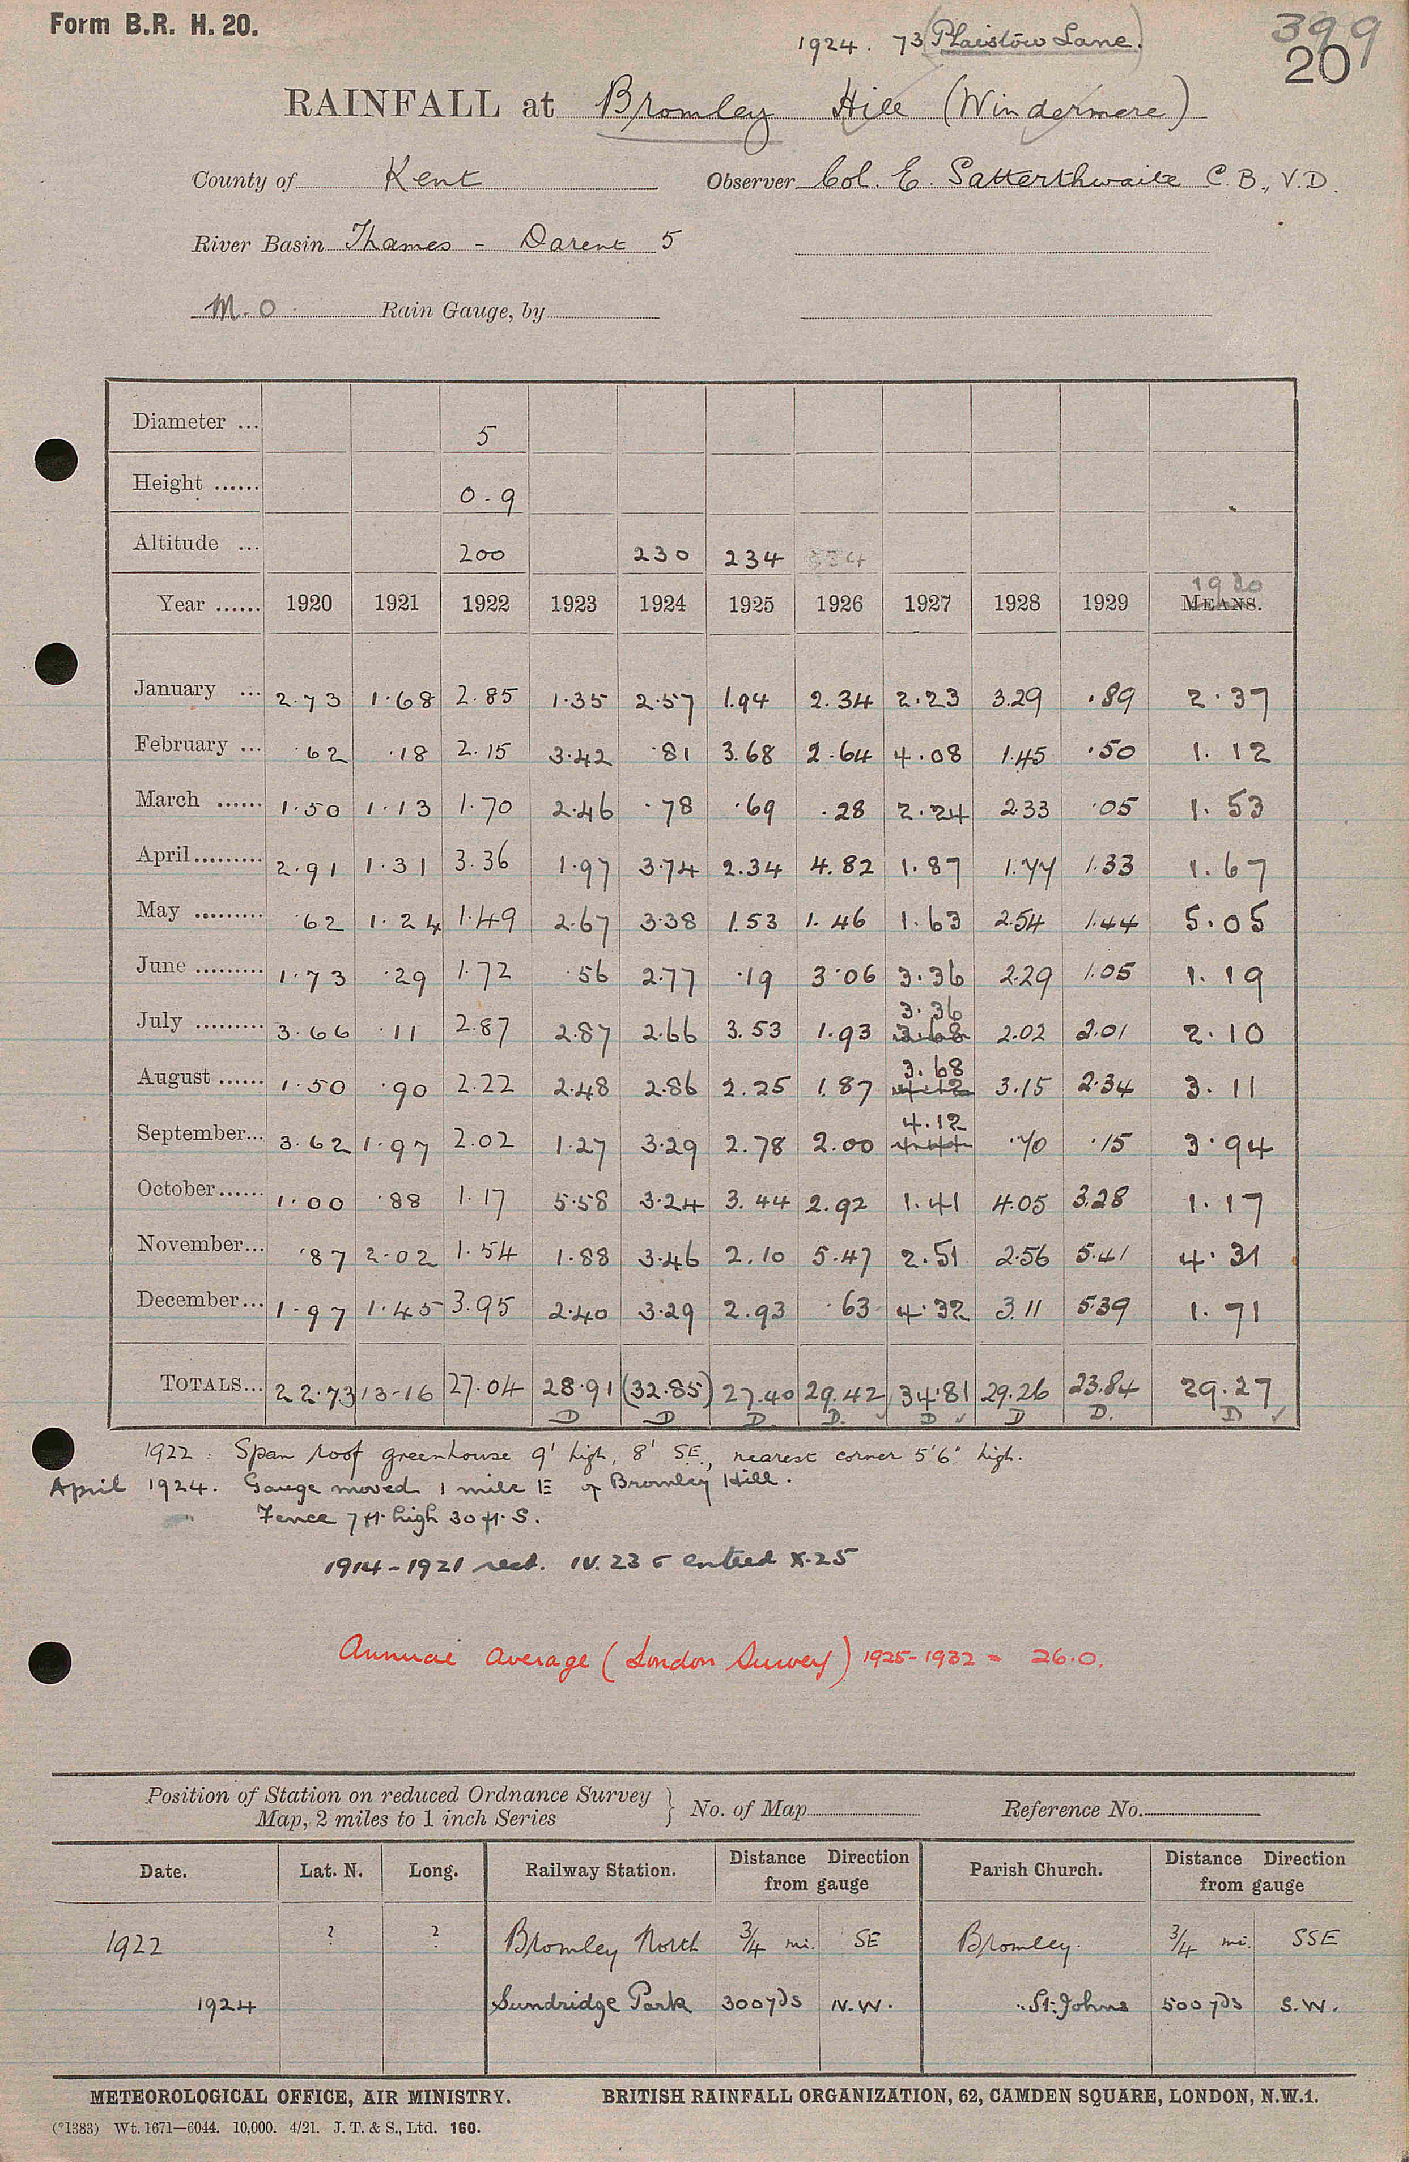 Form B.R. H. 20.
1924. 73 (Plaistow Lane.)
399
20
RAINFALL at Bromley Hill (Windermere)
County of Kent Observer Col. E. Satterthwaite C.B., V.D.
River Basin Thames - Darent 5
M.O. Rain Gauge, by
Diameter ... 5
Height ...... 0.9
Altitude ... 200 230 234 234
Year ...... 1920 1921 1922 1923 1924 1925 1926 1927 1928 1929 MEANS. 1930
January ... 2.73 1.68 2.85 1.35 2.57 1.94 2.34 2.23 3.29 .89 2.37
February ... .62 .18 2.15 3.42 .81 3.68 2.64 4.08 1.45 .50 1.12
March ...... 1.50 1.13 1.70 2.46 .78 .69 .28 2.24 2.33 .05 1.53
April......... 2.91 1.31 3.36 1.97 3.74 2.34 4.82 1.87 1.77 1.33 1.67
May ......... .62 1.24 1.49 2.67 3.38 1.53 1.46 1.63 2.54 1.44 5.05
June ......... 1.73 .29 1.72 .56 2.77 .19 3.06 3.36 2.29 1.05 1.19
July ......... 3.66 .11 2.87 2.87 2.66 3.53 1.93 3.36 3.68 2.02 2.01 2.10
August ...... 1.50 .90 2.22 2.48 2.86 2.25 1.87 3.68 4.12 3.15 2.34 3.11
September... 3.62 1.97 2.02 1.27 3.29 2.78 2.00 4.12 4.44 .70 .15 3.94
October...... 1.00 .88 1.17 5.58 3.24 3.44 2.92 1.41 4.05 3.28 1.17
November... .87 2.02 1.54 1.88 3.46 2.10 5.47 2.51 2.56 5.41 4.31
December... 1.97 1.45 3.95 2.40 3.29 2.93 .63 4.32 3.11 5.39 1.71
TOTALS... 22.73 13.16 27.04 28.91 (32.85) 27.40 29.42 34.81 29.26 23.84 29.27
D D D. D. ✓ D ✓ D D. D ✓
1922. Span roof greenhouse 9' high, 8' SE, nearest corner 5'6" high.
April 1924. Gauge moved 1 mile E of Bromley Hill.
Fence 7 ft. high 30 ft. S.
1914-1921 recd. IV.23 & entered X.25
Annual Average (London Survey) 1925-1932 = 26.0.
Position of Station on reduced Ordnance Survey Map, 2 miles to 1 inch Series } No. of Map Reference No.
Date. Lat. N. Long. Railway Station. Distance Direction from gauge Parish Church. Distance Direction from gauge
1922 ? ? Bromley North 3/4 mi. SE Bromley. 3/4 mi. SSE
1924 Sundridge Park 300 yds N.W. St. Johns 500 yds S.W.
METEOROLOGICAL OFFICE, AIR MINISTRY. BRITISH RAINFALL ORGANIZATION, 62, CAMDEN SQUARE, LONDON, N.W.1.
(*1383) Wt. 1671—6044. 10,000. 4/21. J. T. & S., Ltd. 160.